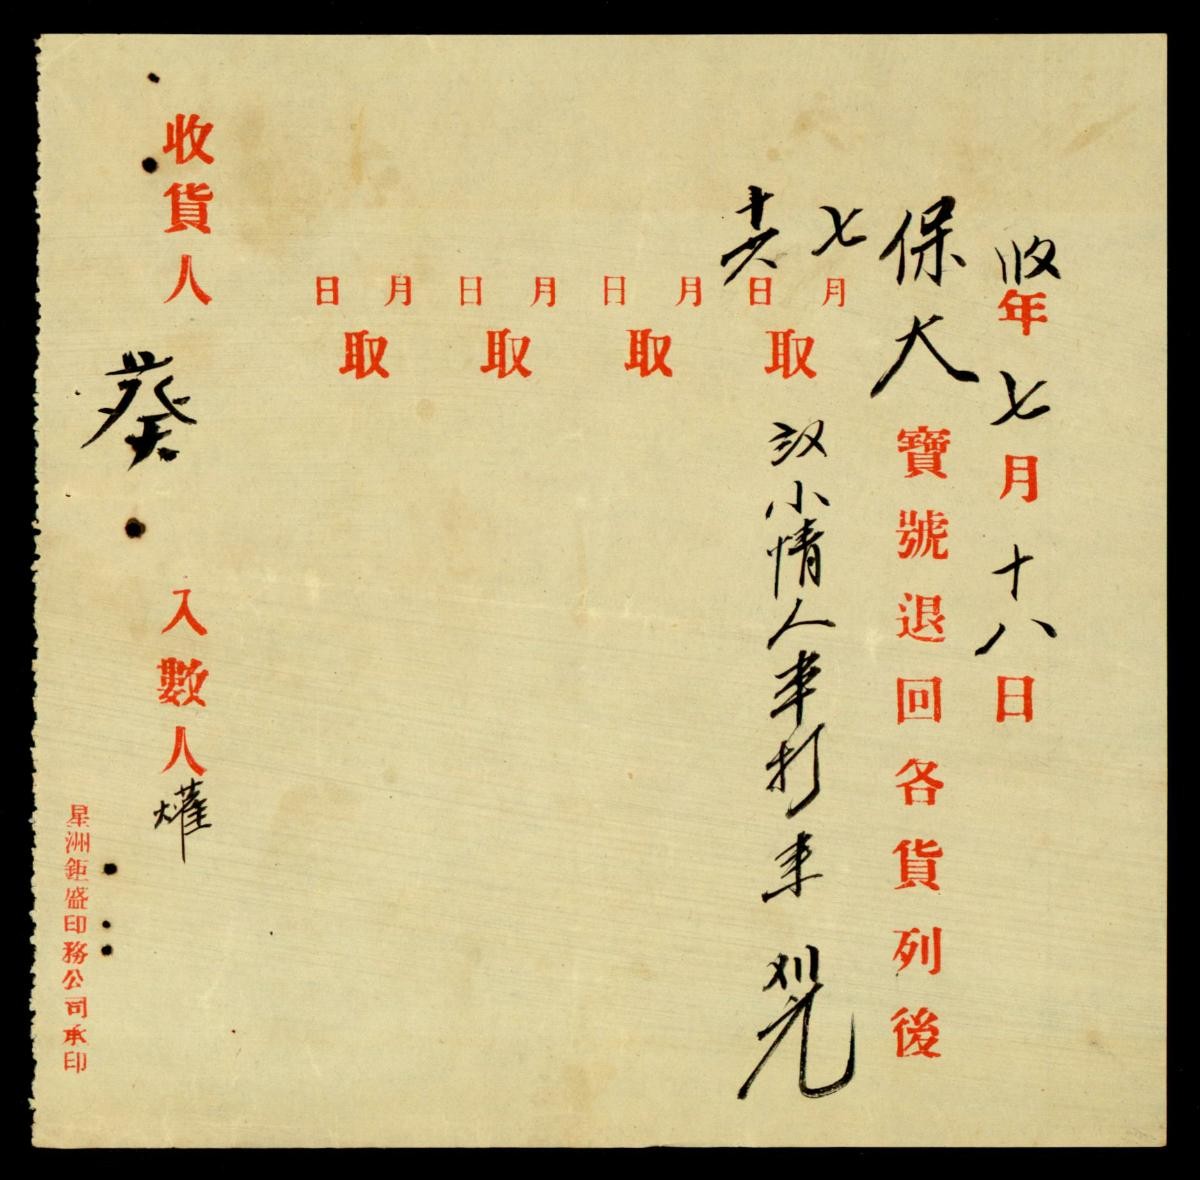 年七月十八日
保大寶號退回各貨列後
七月十六日取
小情人車打
月日取
月日取
月日取
收貨人葵
入數人燿
星洲鉅盛印務公司承印